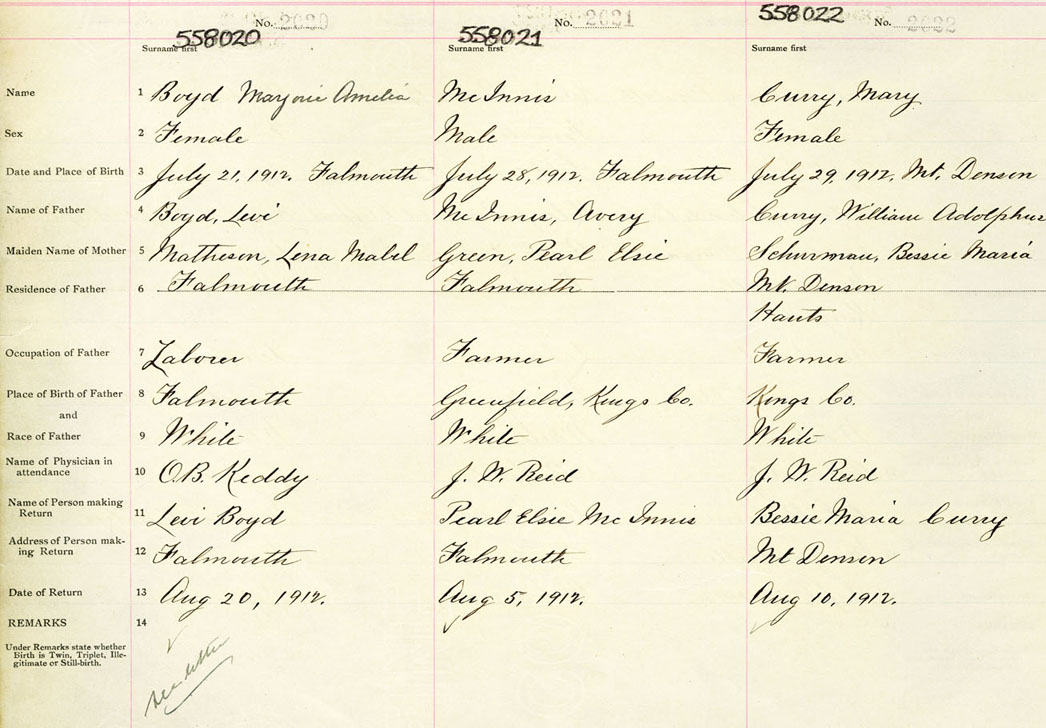 No. 2020 No. 2021 558022 No. 2022
558020 558021
Surname first Surname first Surname first
Name 1 Boyd Marjorie Amelia McInnis Curry, Mary
Sex 2 Female Male Female
Date and Place of Birth 3 July 21, 1912. Falmouth July 28, 1912. Falmouth July 29, 1912, Mt. Denson
Name of Father 4 Boyd, Levi McInnis, Avery Curry, William Adolphus
Maiden Name of Mother 5 Matheson, Lena Mabel Green, Pearl Elsie Schurman, Bessie Maria
Residence of Father 6 Falmouth Falmouth Mt. Denson
Hants
Occupation of Father 7 Laborer Farmer Farmer
Place of Birth of Father 8 Falmouth Greenfield, Kings Co. Kings Co.
and
Race of Father 9 White White White
Name of Physician in
attendance 10 O.B. Keddy J. W. Reid J. W. Reid
Name of Person making
Return 11 Levi Boyd Pearl Elsie Mc Innis Bessie Maria Curry
Address of Person mak-
ing Return 12 Falmouth Falmouth Mt Denson
Date of Return 13 Aug 20, 1912. Aug 5, 1912. Aug 10, 1912.
REMARKS 14
Under Remarks state whether
Birth is Twin, Triplet, Ille-
gitimate or Still-birth.
see letter